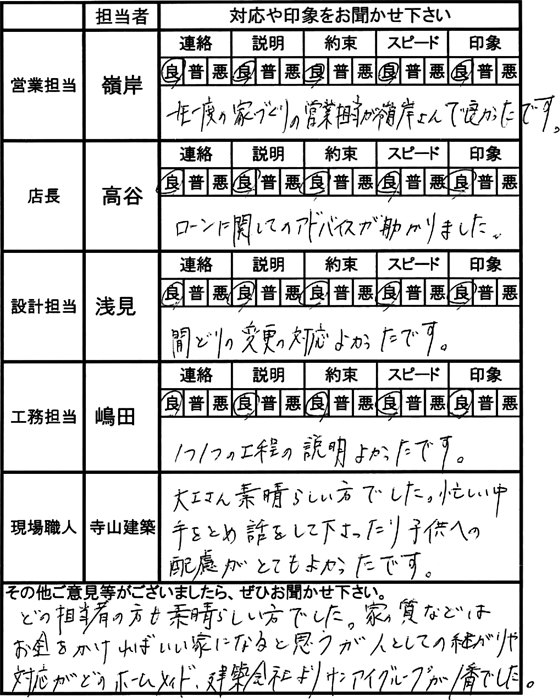 担当者 対応や印象をお聞かせ下さい
営業担当 嶺岸 連絡 説明 約束 スピード 印象
良 普 悪 良 普 悪 良 普 悪 良 普 悪 良 普 悪
一生一度の家づくりの営業担当が嶺岸さんで良かったです。
店長 高谷 連絡 説明 約束 スピード 印象
良 普 悪 良 普 悪 良 普 悪 良 普 悪 良 普 悪
ローンに関してのアドバイスが助かりました。
設計担当 浅見 連絡 説明 約束 スピード 印象
良 普 悪 良 普 悪 良 普 悪 良 普 悪 良 普 悪
間どりの変更の対応よかったです。
工務担当 嶋田 連絡 説明 約束 スピード 印象
良 普 悪 良 普 悪 良 普 悪 良 普 悪 良 普 悪
1つ1つの工程の説明よかったです。
現場職人 寺山建築
大工さん素晴らしい方でした。忙しい中
手をとめ話をして下さったり子供への
配慮がとてもよかったです。
その他ご意見等がございましたら、ぜひお聞かせ下さい。
どの担当者の方も素晴らしい方でした。家の質などは
お金をかければいい家になると思うが人としての繋がりや
対応がどのホームメイド、建築会社よりサンアイグループが1番でした。